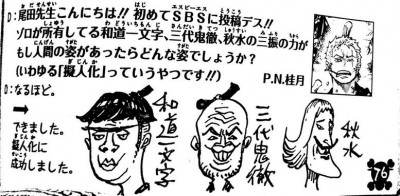 D：尾田先生こんにちは!! 初めてSBSに投稿デス!!
ゾロが所有してる和道一文字、三代鬼徹、秋水の三振の力が
もし人間の姿があったらどんな姿でしょうか？
(いわゆる「擬人化」っていうやつです!!)
P.N.桂月
D：なるほど。
→
できました。
擬人化に
成功しました。
和道一文字
三代鬼徹
秋水
76